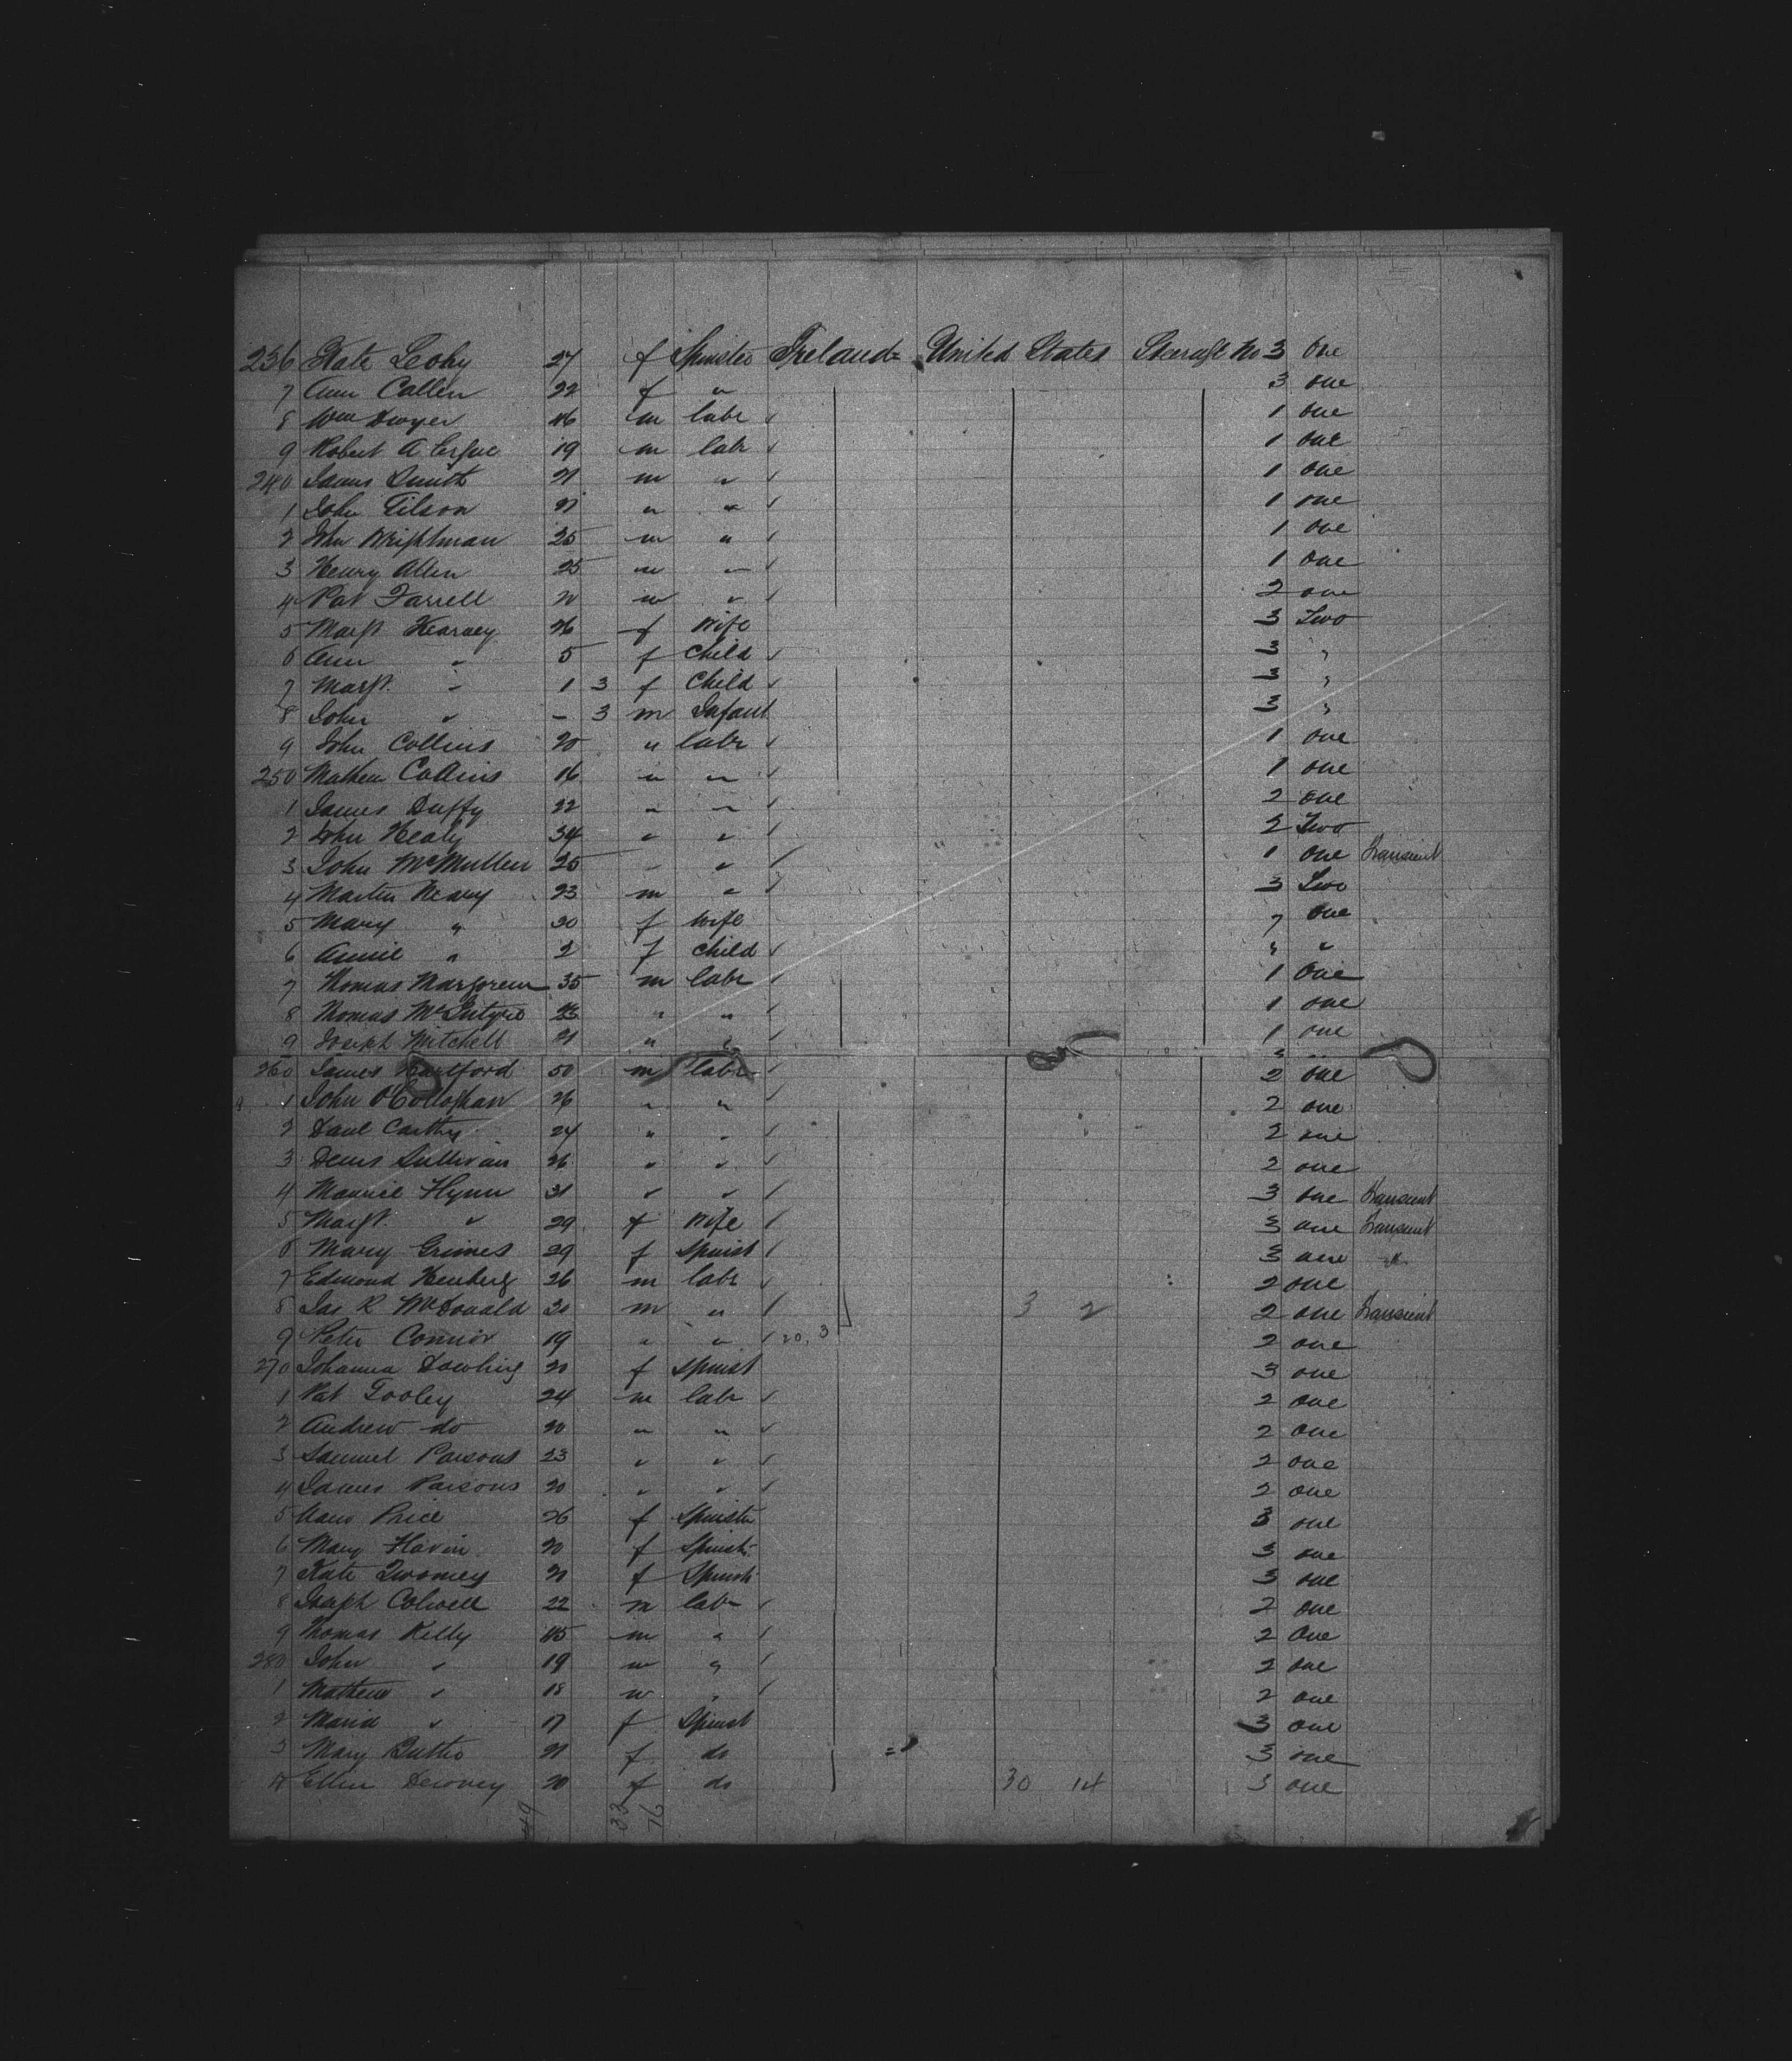 236 Kate 27 f Spinster Ireland United States Steerage No 3 One
7 Ann Callen 22 f " 3 one
8 Wm Dwyer 16 m labr 1 one
9 Robert A. 19 m labr 1 one
240 James Smith 21 m " 1 one
1 John Tilson 21 " " 1 one
2 John Wrightman 25 m " 1 one
3 Henry Allen 25 m " 1 one
4 Pat Farrell m " 2 one
5 Margt Kearney 26 f Wife 3 Two
6 Ann " 5 f Child 3 "
7 Margt. " 1 3 f Child 3 "
8 John " - 3 m Infant 3 "
9 John Collins 20 " labr 1 one
250 Mathew Collins 16 " " 1 one
1 James Duffy 22 " " 2 one
2 John Healy 34 " " 2 Two
3 John McMullen 25 " " 1 one transient
4 Martin Neary 23 m " 3 Two
5 Mary " 30 f Wife " one
6 Annie " 2 f Child " "
7 Thomas 35 m labr 1 One
8 Thomas McIntyre " " 1 one
9 Joseph Mitchell 21 " " 1 one
260 James Hartford 50 m labr 2 one
1 John O'Callaghan 26 " " 2 one
2 Danl Carthy 24 " " 2 one
3 Denis Sullivan 26 " " 2 one
4 Maurice Flynn 31 " " 3 one transient
5 Margt. " 29 f Wife 3 one transient
6 Mary Grimes 29 f Spinst 3 one "
7 Edmond 26 m labr 2 one
8 Jas R McDonald 30 m " 3 2 2 one transient
9 Peter Connor 19 " " 20, 3 2 one
270 Johanna Dowling 20 f Spinst 3 one
1 Pat Tooley 24 m labr 2 one
2 Andrew do 20 " " 2 one
3 Samuel Parsons 23 " " 2 one
4 James Parsons 20 " " 2 one
5 Price 26 f Spinster 3 one
6 Mary Flavin 20 f Spinstr 3 one
7 Kate Twomey 21 f Spinstr 3 one
8 Joseph Colwell 22 m labr 2 one
9 Thomas Kelly 45 m " 2 One
280 John " 19 m " 2 one
1 Mathew " 18 m " 2 one
2 Maria " 17 f Spinst 3 one
3 Mary 21 f do 3 one
4 Ellen 20 f do 30 14 3 one
49 33 76